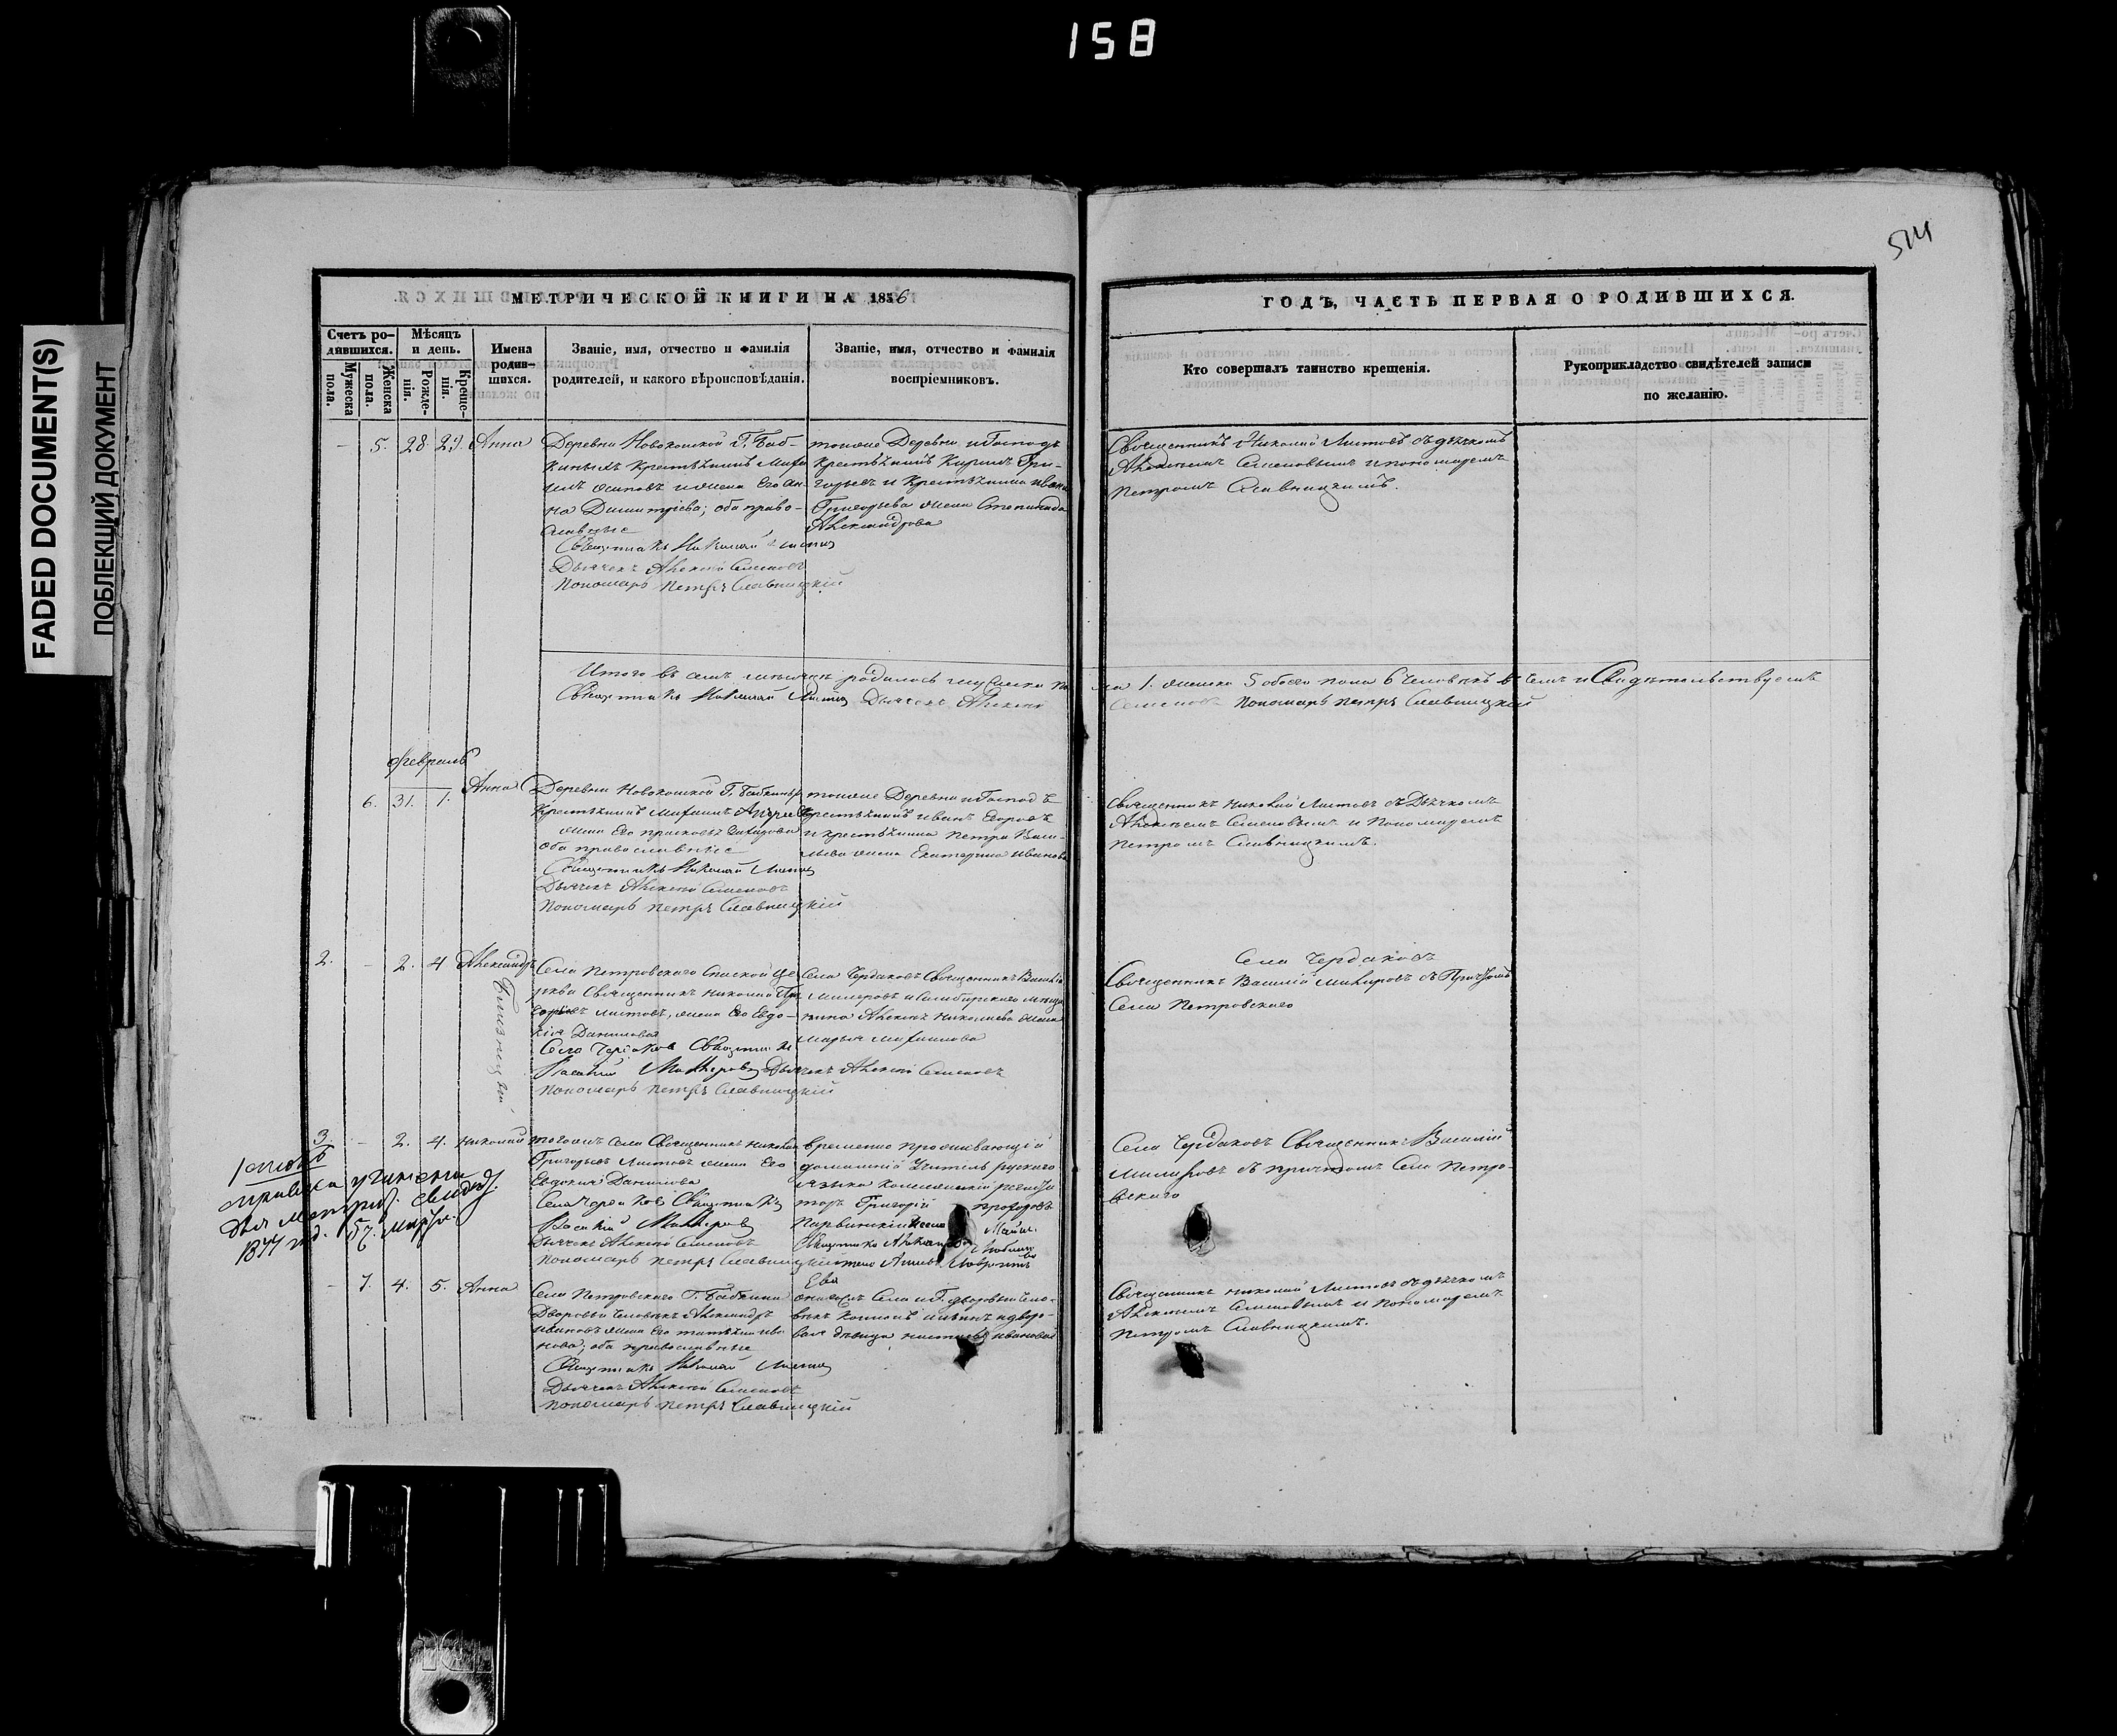 158
FADED DOCUMENT(S)
ПОБЛЕКЩИЙ ДОКУМЕНТ
514
МЕТРИЧЕСКОЙ КНИГИ НА 1856
ГОДЪ, ЧАСТЬ ПЕРВАЯ О РОДИВШИХСЯ.
Счетъ родившихся.
Мужеска пола.
Женска пола.
Мѣсяцъ и день.
Рожденія.
Крещенія.
Имена родившихся.
Званіе, имя, отчество и фамилія
родителей, и какого вѣроисповѣданія.
Званіе, имя, отчество и фамилія
воспріемниковъ.
Кто совершалъ таинство крещенія.
Рукоприкладство свидѣтелей записи
по желанію.
- 5. 28 29. Анна
Деревни Новокошской Г. Баб-
киныхъ Крестьянинъ Миха
илъ Осиповъ и жена Его Ан-
на Димитріева; оба право-
славные
Священникъ Николай Листовъ
Дьячекъ Алексей Семеновъ
Пономарь Петръ Славницкій
тояже Деревни и Господъ
Крестьянинъ Кирилъ Гри-
горьевъ и Крестьянина Ивана
Григорьева жена Степанида
Александрова
Священникъ Николай Листовъ съ дьячкомъ
Алексеемъ Семеновымъ и пономаремъ
Петромъ Славницкимъ.
Итого въ семъ мѣсяцѣ родилось мужеска по
ла 1. женска 5 обоего пола 6 человѣкъ въ чемъ и Свидѣтельствуемъ
Священникъ Николай Листовъ Дьячекъ Алексей
Семеновъ Пономарь Петръ Славницкий
Февраль
6. 31. 1. Анна
Деревни Новокошской Г. Бабкиныхъ
Крестьянинъ Михаилъ
жена Его Прасковья
оба православные
Священникъ Николай Листовъ
Дьячекъ Алексей Семеновъ
Пономарь Петръ Славницкій
тояже Деревни и Господъ
Крестьянинъ Иванъ Егоровъ
и крестьянина Петра Васи-
льева жена Екатерина Иванова
Священникъ Николай Листовъ съ Дьячкомъ
Алексеемъ Семеновымъ и Пономаремъ
Петромъ Славницкимъ.
2. - 2. 4 Александръ
Близнецы
Села Петровскаго Спаской Це
ркви Священникъ Николай Гри
горьевъ Листовъ, жена Его Евдо-
кія Данилова
Села Чердаковъ Священникъ
Василий Дьячекъ Алексей Семеновъ
Пономарь Петръ Славницкій
Села Чердаковъ Священникъ Василій
и Симбирскаго мѣща
нина Алексея Николаева жена
Марья Михайлова
Села Чердаковъ
Священникъ Василій съ Причтомъ
Села Петровскаго
3. - 2. 4. Николай
тогожъ Села Священникъ Николай
Григорьевъ Листовъ жена Его
Евдокия Данилова
Села Чердаковъ Священникъ
Василий
Дьячекъ Алексей Семеновъ
Пономарь Петръ Славницкій
временно проживающій
домашній Учитель рускаго
языка коллежскій регистра
торъ Григорій Прохоровъ
Села Чердаковъ Священникъ Василий
съ причтомъ Села Петро-
вскаго
справка учинена
для метрич. свидет.
1877 год. марта
- 7. 4. 5. Анна
Села Петровскаго Г. Бабкина
Дворовый Человѣкъ Александръ
Ивановъ жена Его Татьяна Ива
нова; оба православные
Священникъ Николай Листовъ
Дьячекъ Алексей Семеновъ
Пономарь Петръ Славницкій
Села и Г. дворовый чело-
вѣкъ и дворо-
вая дѣвица Иванова
Священникъ Николай Листовъ съ дьячкомъ
Алексеемъ Семеновымъ и Пономаремъ
Петромъ Славницкимъ.